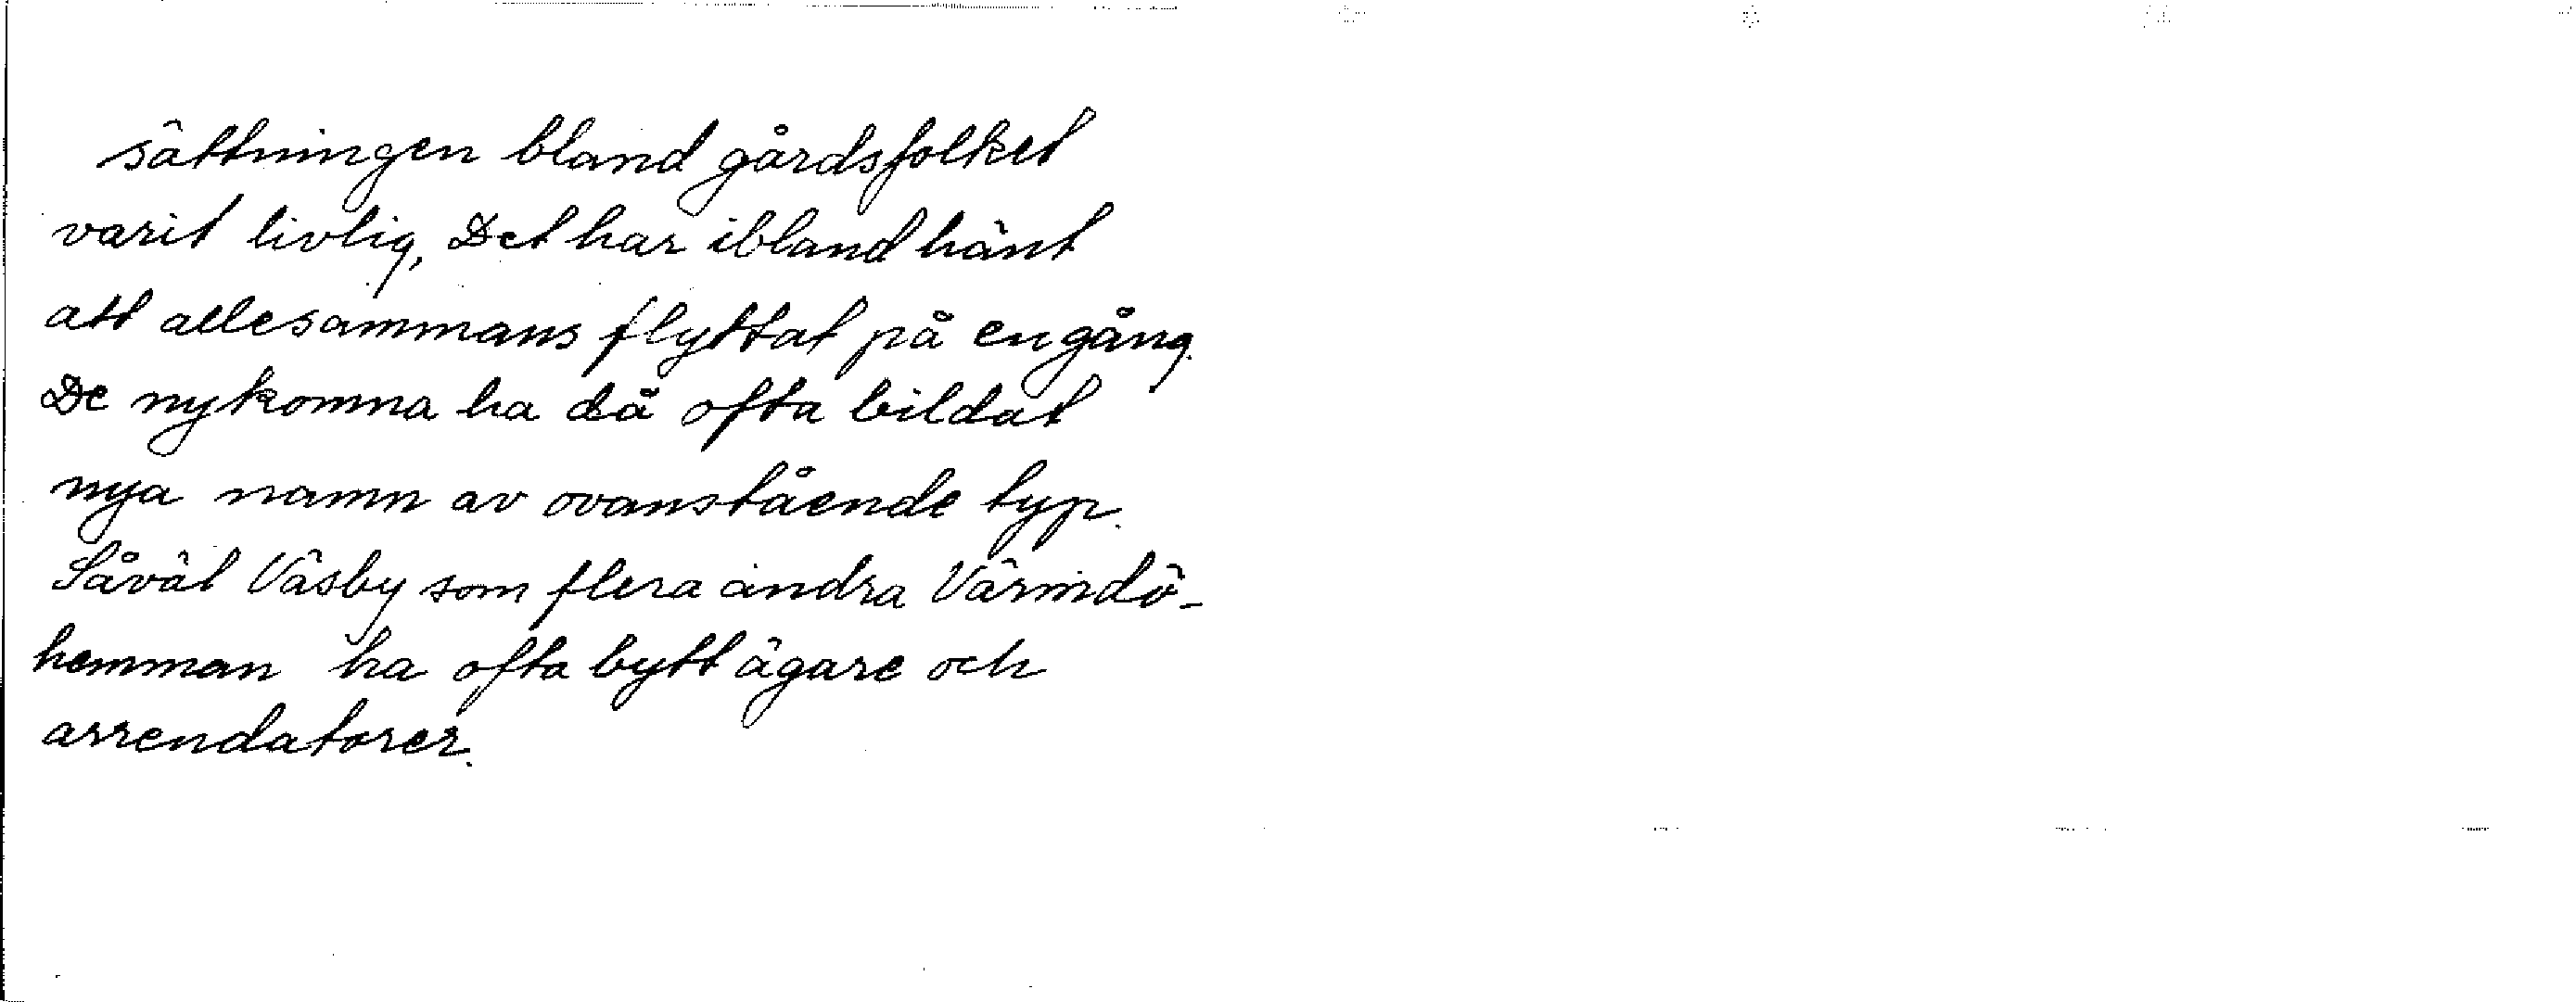 sättningen bland gårdsfolket
varit livlig, Det har ibland hänt
att allesammans flyttat på en gång.
De nykomna ha då ofta bildat
nya namn av ovanstående typ.
Såväl Väsby som flera andra Värmdö-
hemman ha ofta bytt ägare och
arrendatorer.